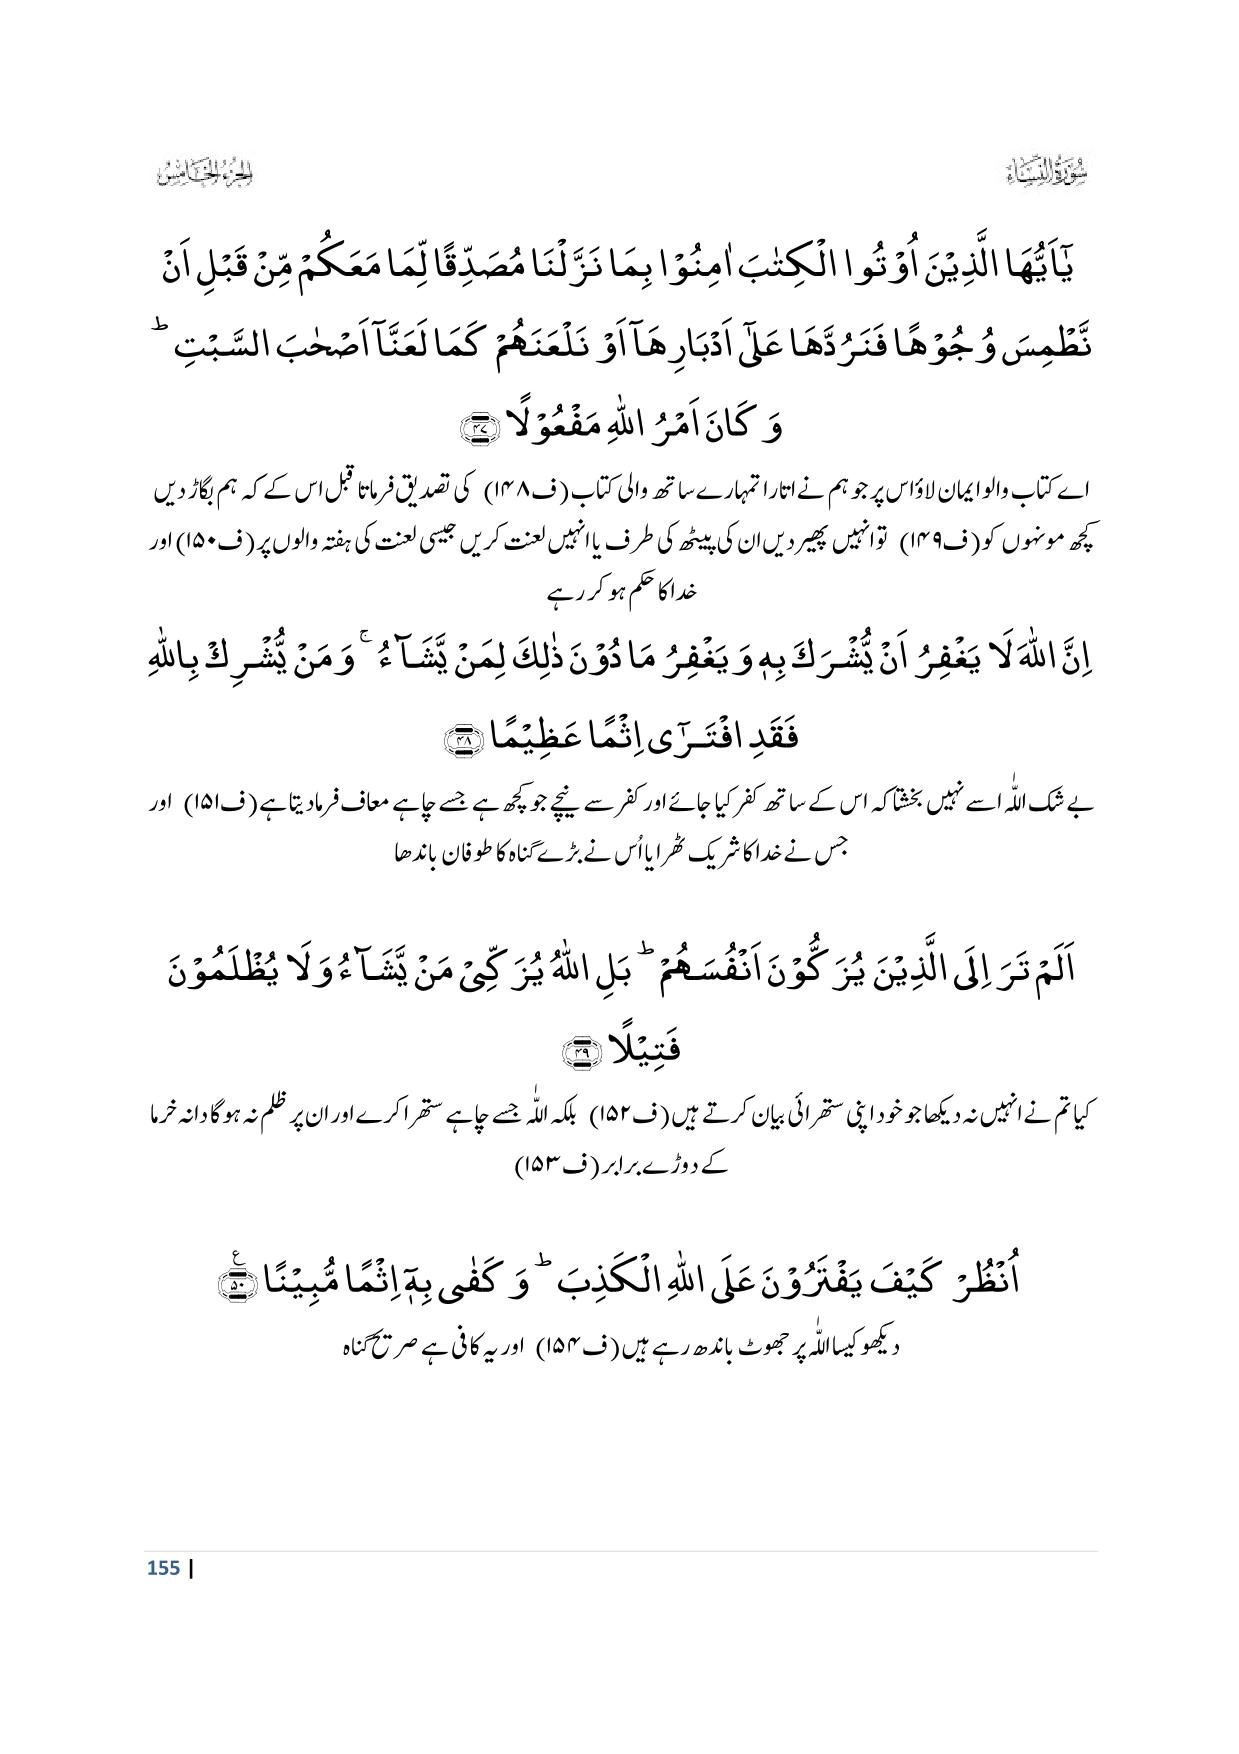 سُوۡرَةُ النِّسَآء
الجزء الخامس
يٰۤاَيُّهَا الَّذِيۡنَ اُوۡتُوا الۡكِتٰبَ اٰمِنُوۡا بِمَا نَزَّلۡنَا مُصَدِّقًا لِّمَا مَعَكُمۡ مِّنۡ قَبۡلِ اَنۡ
نَّطۡمِسَ وُجُوۡهًا فَنَرُدَّهَا عَلٰٓى اَدۡبَارِهَاۤ اَوۡ نَلۡعَنَهُمۡ كَمَا لَعَنَّاۤ اَصۡحٰبَ السَّبۡتِ‌ ؕ
وَ كَانَ اَمۡرُ اللّٰهِ مَفۡعُوۡلًا ﴿۴۷﴾
اے کتاب والو ایمان لاؤ اس پر جو ہم نے اتارا تمہارے ساتھ والی کتاب (ف۱۴۸) کی تصدیق فرماتا قبل اس کے کہ ہم بگاڑ دیں
کچھ مونہوں کو (ف۱۴۹) تو انہیں پھیر دیں ان کی پیٹھ کی طرف یا انہیں لعنت کریں جیسی لعنت کی ہفتہ والوں پر (ف۱۵۰) اور
خدا کا حکم ہو کر رہے
اِنَّ اللّٰهَ لَا يَغۡفِرُ اَنۡ يُّشۡرَكَ بِهٖ وَ يَغۡفِرُ مَا دُوۡنَ ذٰلِكَ لِمَنۡ يَّشَآءُ‌ ۚ وَ مَنۡ يُّشۡرِكۡ بِاللّٰهِ
فَقَدِ افۡتَـرٰۤى اِثۡمًا عَظِيۡمًا ﴿۴۸﴾
بے شک اللہ اسے نہیں بخشتا کہ اس کے ساتھ کفر کیا جائے اور کفر سے نیچے جو کچھ ہے جسے چاہے معاف فرما دیتا ہے (ف۱۵۱) اور
جس نے خدا کا شریک ٹھرایا اُس نے بڑے گناہ کا طوفان باندھا
اَلَمۡ تَرَ اِلَى الَّذِيۡنَ يُزَكُّوۡنَ اَنۡفُسَهُمۡ‌ ؕ بَلِ اللّٰهُ يُزَكِّىۡ مَنۡ يَّشَآءُ وَلَا يُظۡلَمُوۡنَ
فَتِيۡلًا ﴿۴۹﴾
کیا تم نے انہیں نہ دیکھا جو خود اپنی ستھرائی بیان کرتے ہیں (ف۱۵۲) بلکہ اللہ جسے چاہے ستھرا کرے اور ان پر ظلم نہ ہو گا دانہ خرما
کے دوڑے برابر (ف۱۵۳)
اُنْظُرۡ كَيۡفَ يَفۡتَرُوۡنَ عَلَى اللّٰهِ الۡكَذِبَ‌ ؕ وَ كَفٰى بِهٖۤ اِثۡمًا مُّبِيۡنًا ﴿۵۰﴾ ع
دیکھو کیسا اللہ پر جھوٹ باندھ رہے ہیں (ف۱۵۴) اور یہ کافی ہے صریح گناہ
155 |